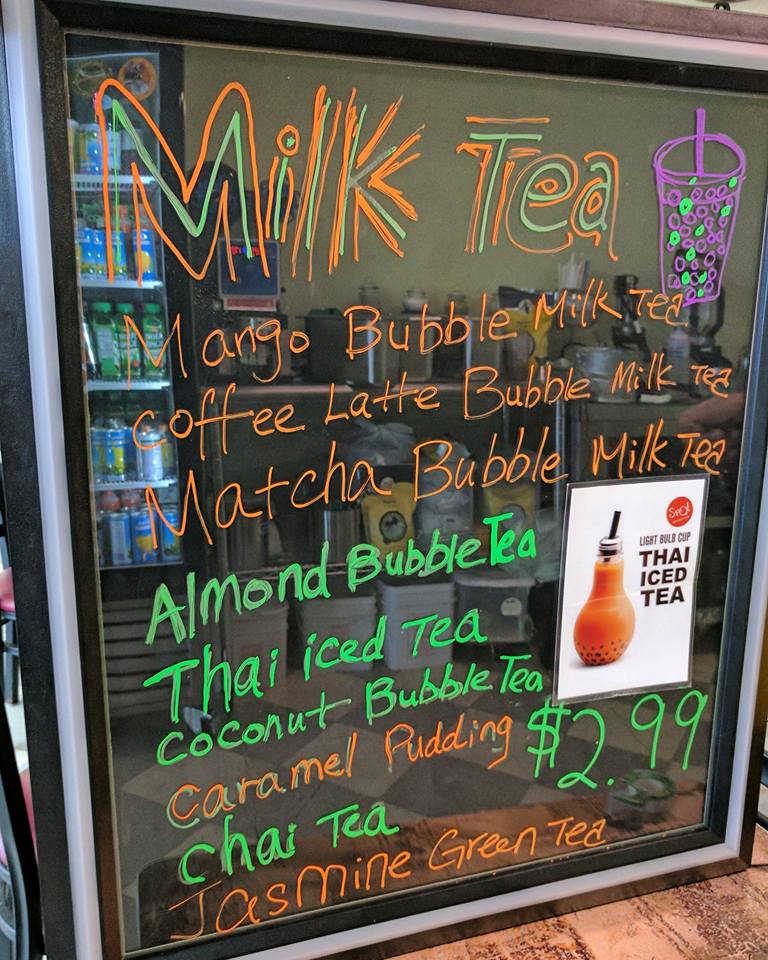 Milk Tea
Mango Bubble Milk Tea
Coffee Latte Bubble Milk Tea
Matcha Bubble Milk Tea
Almond Bubble Tea
LIGHT BULB CUP
THAI
ICED
TEA
Thai iced Tea
Coconut Bubble Tea
Caramel Pudding
$2.99
Chai Tea
Jasmine Green Tea